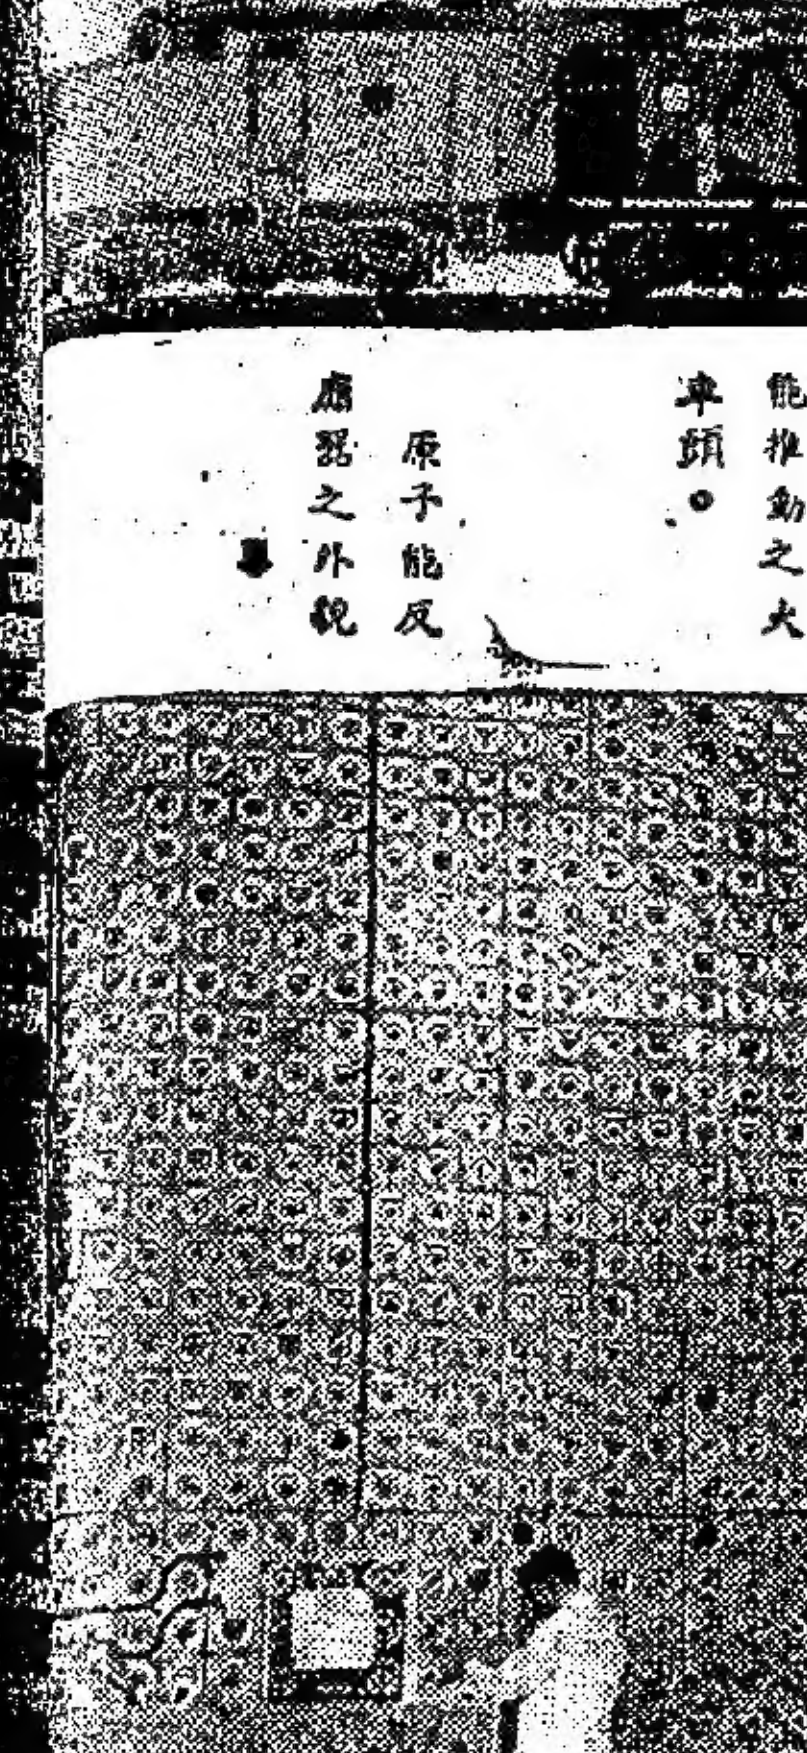 能推動之火
車頭。
原子能反
應器之外貌